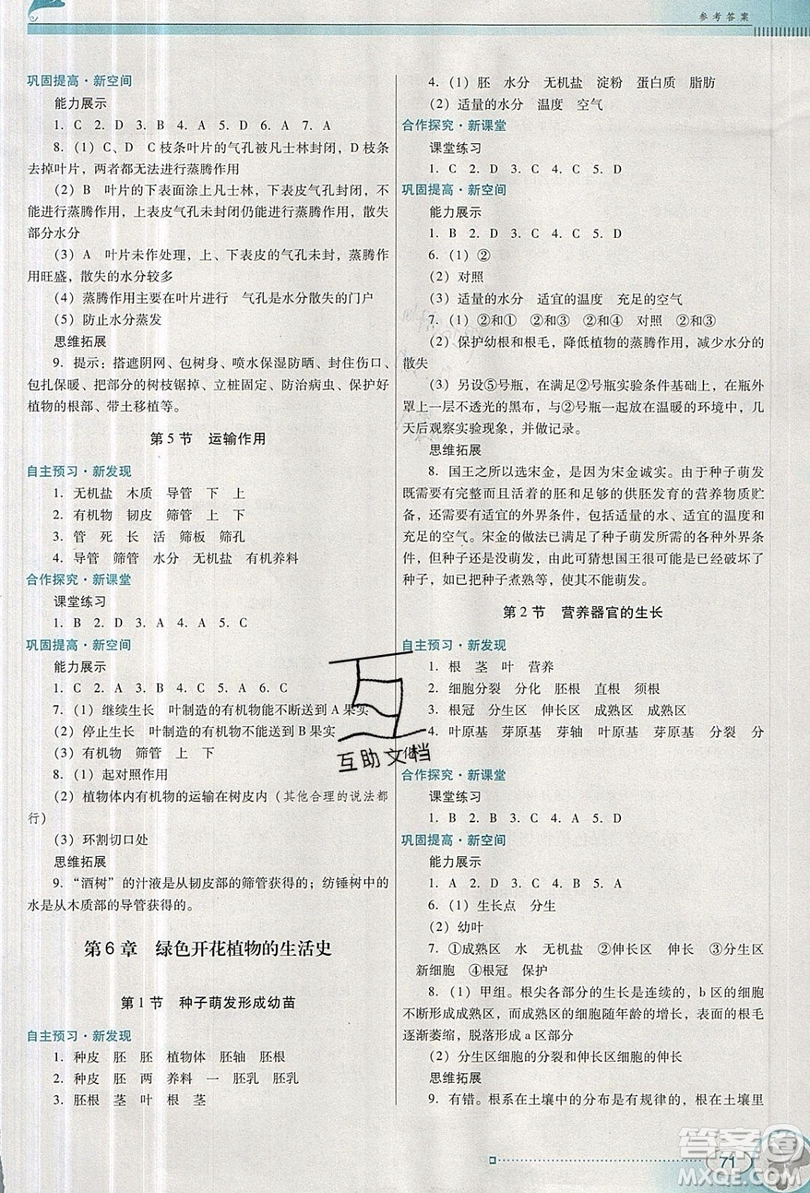 参考答案
巩固提高·新空间
能力展示
1. C 2. D 3. B 4. A 5. D 6. A 7. A
8. (1) C、D C 枝条叶片的气孔被凡士林封闭，D 枝条
去掉叶片，两者都无法进行蒸腾作用
(2) B 叶片的下表面涂上凡士林，下表皮气孔被封闭，不
能进行蒸腾作用，上表皮气孔未封闭仍能进行蒸腾作用，散失
部分水分
(3) A 叶片未作处理，上、下表皮的气孔开放，蒸腾作
用旺盛，散失的水分较多
(4) 蒸腾作用主要在叶片进行 气孔是水分散失的门户
(5) 防止水分蒸发
思维拓展
9. 提示：搭遮阴网、包树身、喷水保湿防晒、封住伤口、
包扎保暖、把多余的树枝锯掉、立桩固定、防治病虫、保护好
植物的根部、带土移植等。
第 5 节 运输作用
自主预习·新发现
1. 无机盐 木质 导管 下 上
2. 有机物 韧皮 筛管 上 下
3. 管 死 长 活 筛板 筛孔
4. 导管 筛管 水分 无机盐 有机养料
合作探究·新课堂
课堂练习
1. B 2. D 3. D 4. A 5. C
巩固提高·新空间
能力展示
1. C 2. B 3. C 4. B 5. A 6. C
7. (1) 继续生长 叶制造的有机物能不断送到 A 果实
(2) 停止生长 叶制造的有机物不能送到 B 果实
(3) 有机物 筛管 上 下
8. (1) 起对照作用
(2) 植物体内有机物的运输在树皮内（其他合理的说法都
行）
(3) 环割切口处
思维拓展
9. “酒树”的汁液是从韧皮部的筛管获得的；纺锤树中的
水是从木质部的导管获得的。
第 6 章 绿色开花植物的生活史
第 1 节 种子萌发形成幼苗
自主预习·新发现
1. 种皮 胚 胚 植物体 胚轴 胚根
2. 种皮 胚 两 养料 一 胚乳 胚乳
3. 胚根 茎 叶 根 茎
4. (1) 胚 水分 无机盐 淀粉 蛋白质 脂肪
(2) 适量的水分 温度 空气
合作探究·新课堂
课堂练习
1. C 2. D 3. C 4. C 5. D
巩固提高·新空间
能力展示
1. B 2. D 3. C 4. C 5. D
6. (1) ②
(2) 对照
(3) 适量的水分 适宜的温度 充足的空气
7. (1) ②和① ②和③ ②和④ 对照 ②和③
(2) 保护幼根和根毛，降低植物的蒸腾作用，减少水分的
散失
(3) 另设⑤号瓶，在②号瓶实验条件基础上，另外在瓶外
罩上一层不透光的黑布，与②号瓶一起放在温暖的环境中，几
天后观察实验现象，并做好记录。
思维拓展
8. 国王之所以选宋金，是因为宋金诚实。由于种子萌发
既需要有完整而且活着的胚和足够的供胚发育的营养物质贮
备，还要有适宜的外界条件，包括适量的水、适宜的温度和
充足的空气。宋金的做法是完全符合种子萌发的外界条件的，
但种子还是没有萌发，由此可猜想国王可能对种子做了破坏工
作，如把种子煮熟等，使其不能萌发。
第 2 节 营养器官的生长
自主预习·新发现
1. 根 茎 叶 营养
2. 细胞分裂 分化 胚根 直根 须根
3. 根冠 分生区 伸长区 成熟区 成熟区
4. 叶原基 芽原基 芽轴 叶原基 芽原基 分裂 分
化
合作探究·新课堂
课堂练习
1. B 2. B 3. C 4. A 5. D
巩固提高·新空间
能力展示
1. A 2. D 3. C 4. A 5. D
6. (1) 生长点 分生
(2) 幼叶
7. ①成熟区 水 无机盐 ②伸长区 伸长区 ③分生
区 分裂新细胞 ④根冠 保护
8. (1) 甲组。根尖各部分的生长是连续的，b 区的细胞
不断形成成熟区，成熟区的细胞随年龄的增长，表面的根毛
逐渐萎缩，脱落形成 a 区部分
(2) 分生区细胞的分裂和伸长区细胞的伸长
思维拓展
9. 有错。根系在土壤中的分布是有规律的，根在土壤里
互助文档
71
答案圈
MXQE.COM